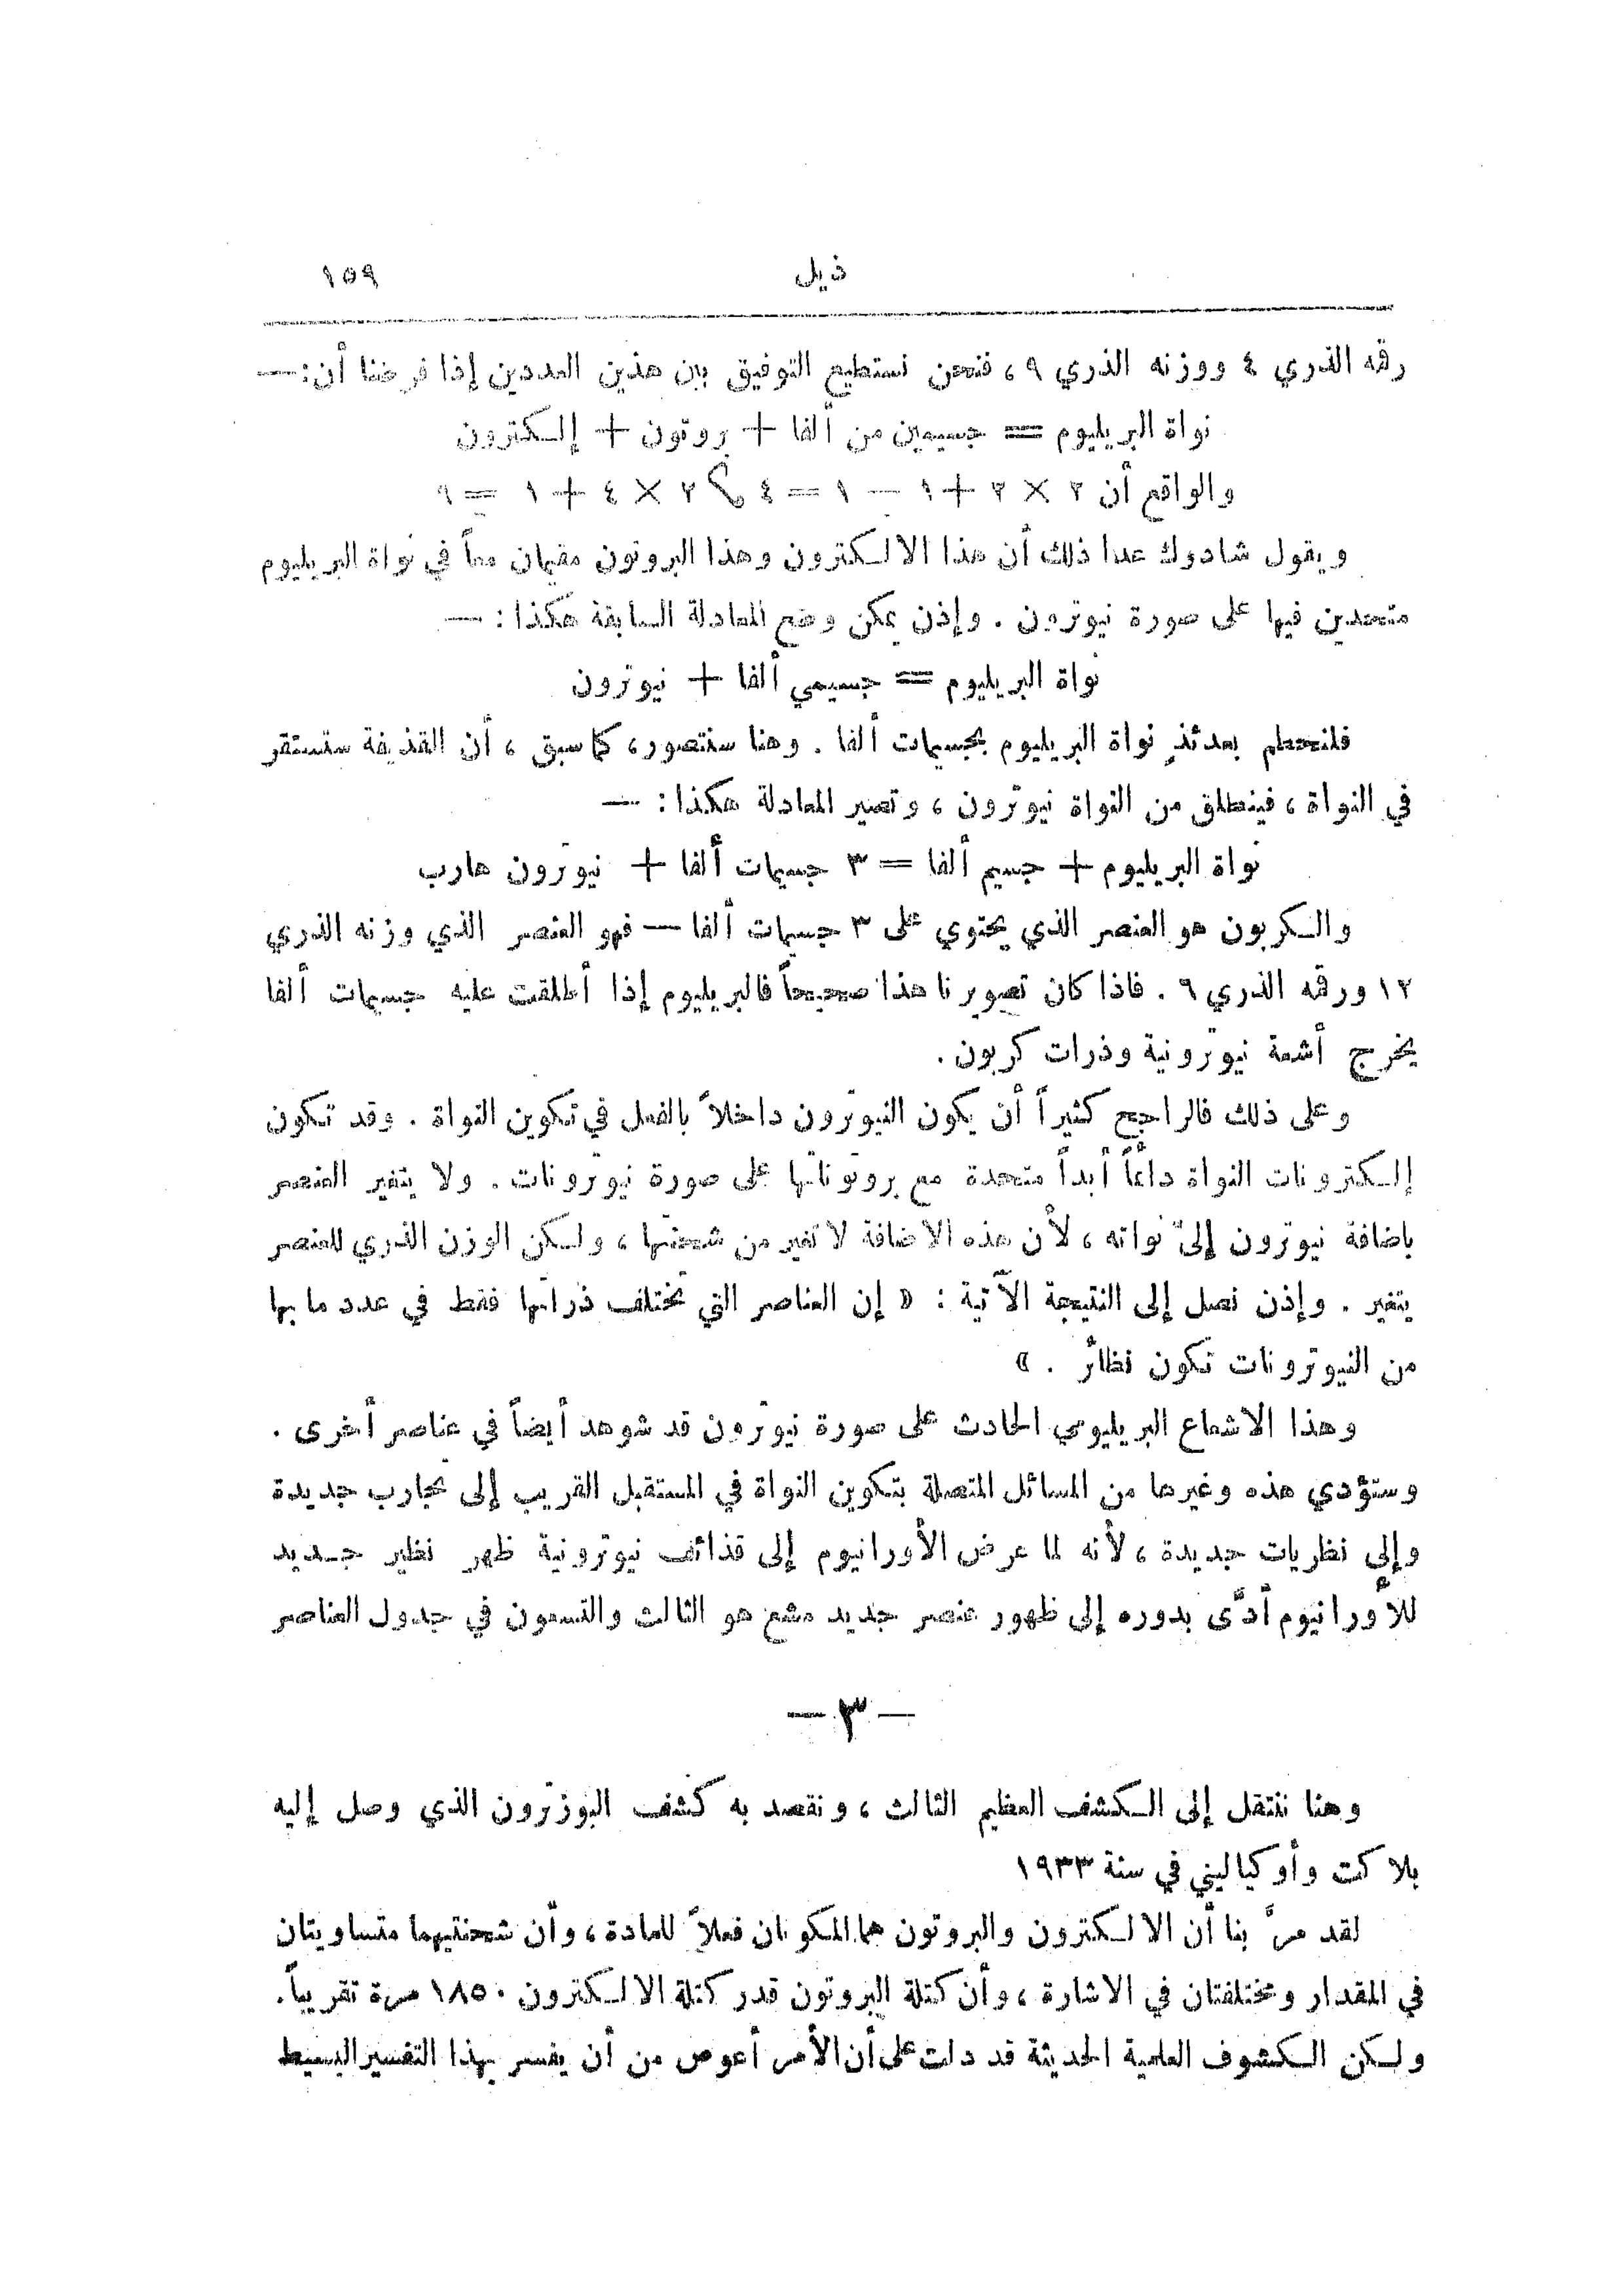 ذيل ١٥٩
رقمه الذري ٤ ووزنه الذري ٩ ، فنحن نستطيع التوفيق بين هذين العددين إذا فرضنا أن : —
نواة البريليوم = جسيمين من ألفا + بروتون + إلكترون
والواقع أن ٢ × ٢ + ١ — ١ = ٤ ؟ ٢ × ٤ + ١ = ٩
ويقول شادوك عدا ذلك أن هذا الالكترون وهذا البروتون مقيمان معاً في نواة البريليوم
متحدين فيها على صورة نيوترون . وإذن يمكن وضع المعادلة السابقة هكذا : —
نواة البريليوم = جسيمي ألفا + نيوترون
فلنحطم بعدئذٍ نواة البريليوم بجسيمات ألفا . وهنا سنتصور ، كما سبق ، أن القذيفة ستستقر
في النواة ، فينطلق من النواة نيوترون ، وتصير المعادلة هكذا : —
نواة البريليوم + جسيم ألفا = ٣ جسيمات ألفا + نيوترون هارب
والكربون هو العنصر الذي يحتوي على ٣ جسيمات ألفا — فهو العنصر الذي وزنه الذري
١٢ ورقمه الذري ٦ . فاذا كان تصويرنا هذا صحيحاً فالبريليوم إذا أطلقت عليه جسيمات ألفا
يخرج أشعة نيوترونية وذرات كربون .
وعلى ذلك فالراجح كثيراً أن يكون النيوترون داخلاً بالفعل في تكوين النواة . وقد تكون
إلكترونات النواة دائماً أبداً متحدة مع بروتوناتها على صورة نيوترونات . ولا يتغير العنصر
باضافة نيوترون إلى نواته ، لأن هذه الاضافة لا تغير من شحنتها ، ولكن الوزن الذري للعنصر
يتغير . وإذن نصل إلى النتيجة الآتية : « إن العناصر التي تختلف ذراتها فقط في عدد ما بها
من النيوترونات تكون نظائر . »
وهذا الاشعاع البريليومي الحادث على صورة نيوترون قد شوهد أيضاً في عناصر أخرى .
وستؤدي هذه وغيرها من المسائل المتصلة بتكوين النواة في المستقبل القريب إلى تجارب جديدة
وإلى نظريات جديدة ، لأنه لما عرض الأورانيوم إلى قذائف نيوترونية ظهر نظير جديد
للأورانيوم أدَّى بدوره إلى ظهور عنصر جديد مشع هو الثالث والتسعون في جدول العناصر
— ٣ —
وهنا ننتقل إلى الكشف العظيم الثالث ، ونقصد به كشف البوزترون الذي وصل إليه
بلاكت وأوكياليني في سنة ١٩٣٣
لقد مرَّ بنا أن الالكترون والبروتون هما المكونان فعلاً للمادة ، وأن شحنتيهما متساويتان
في المقدار ومختلفتان في الاشارة ، وأن كتلة البروتون قدر كتلة الالكترون ١٨٥٠ مرة تقريباً .
ولكن الكشوف العلمية الحديثة قد دلت على أن الأمر أعوص من أن يفسر بهذا التفسير البسيط